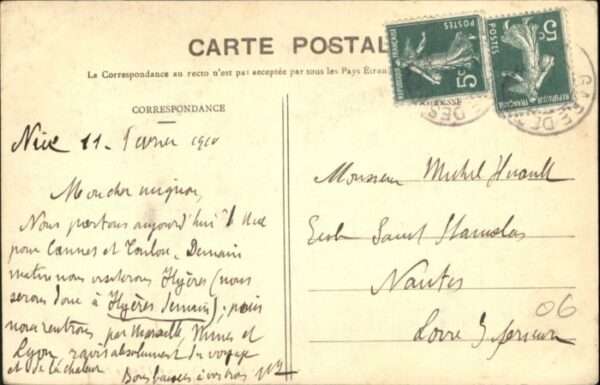 CARTE POSTAL
La Correspondance au recto n'est pas acceptée par tous les Pays Étran
CORRESPONDANCE
Nice 11 Février 1910
Mon cher mignon,
Nous partons aujourd'hui de Nice
pour Cannes et Toulon. Demain
matin nous visiterons Hyères (nous
serons donc à Hyères demain), puis
nous rentrons par Marseille, Nimes et
Lyon, ravis absolument du voyage
et de la chaleur
Bons baisers à vous tous
Monsieur Michel Huault
Ecole Saint Stanislas
Nantes
Loire Inferieure
06
POSTES
REPUBLIQUE FRANÇAISE
5c
POSTES
REPUBLIQUE FRANÇAISE
5c
GARE DE